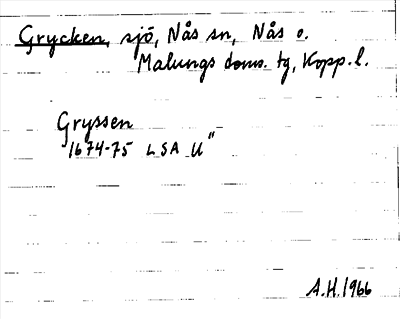 Grycken, sjö, Nås sn, Nås o.
Malungs doms. tg, Kopp. l.
Gryssen
1674-75 LSA U"
A.H. 1966